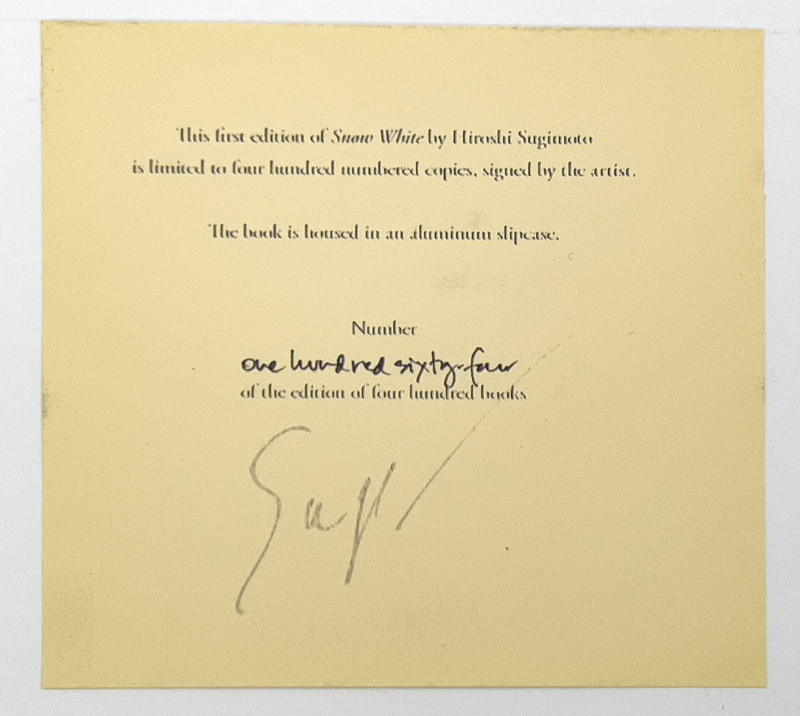 This first edition of Snow White by Hiroshi Sugimoto
is limited to four hundred numbered copies, signed by the artist.
The book is housed in an aluminum slipcase.
Number
one hundred sixty-four
of the edition of four hundred books
Sugi